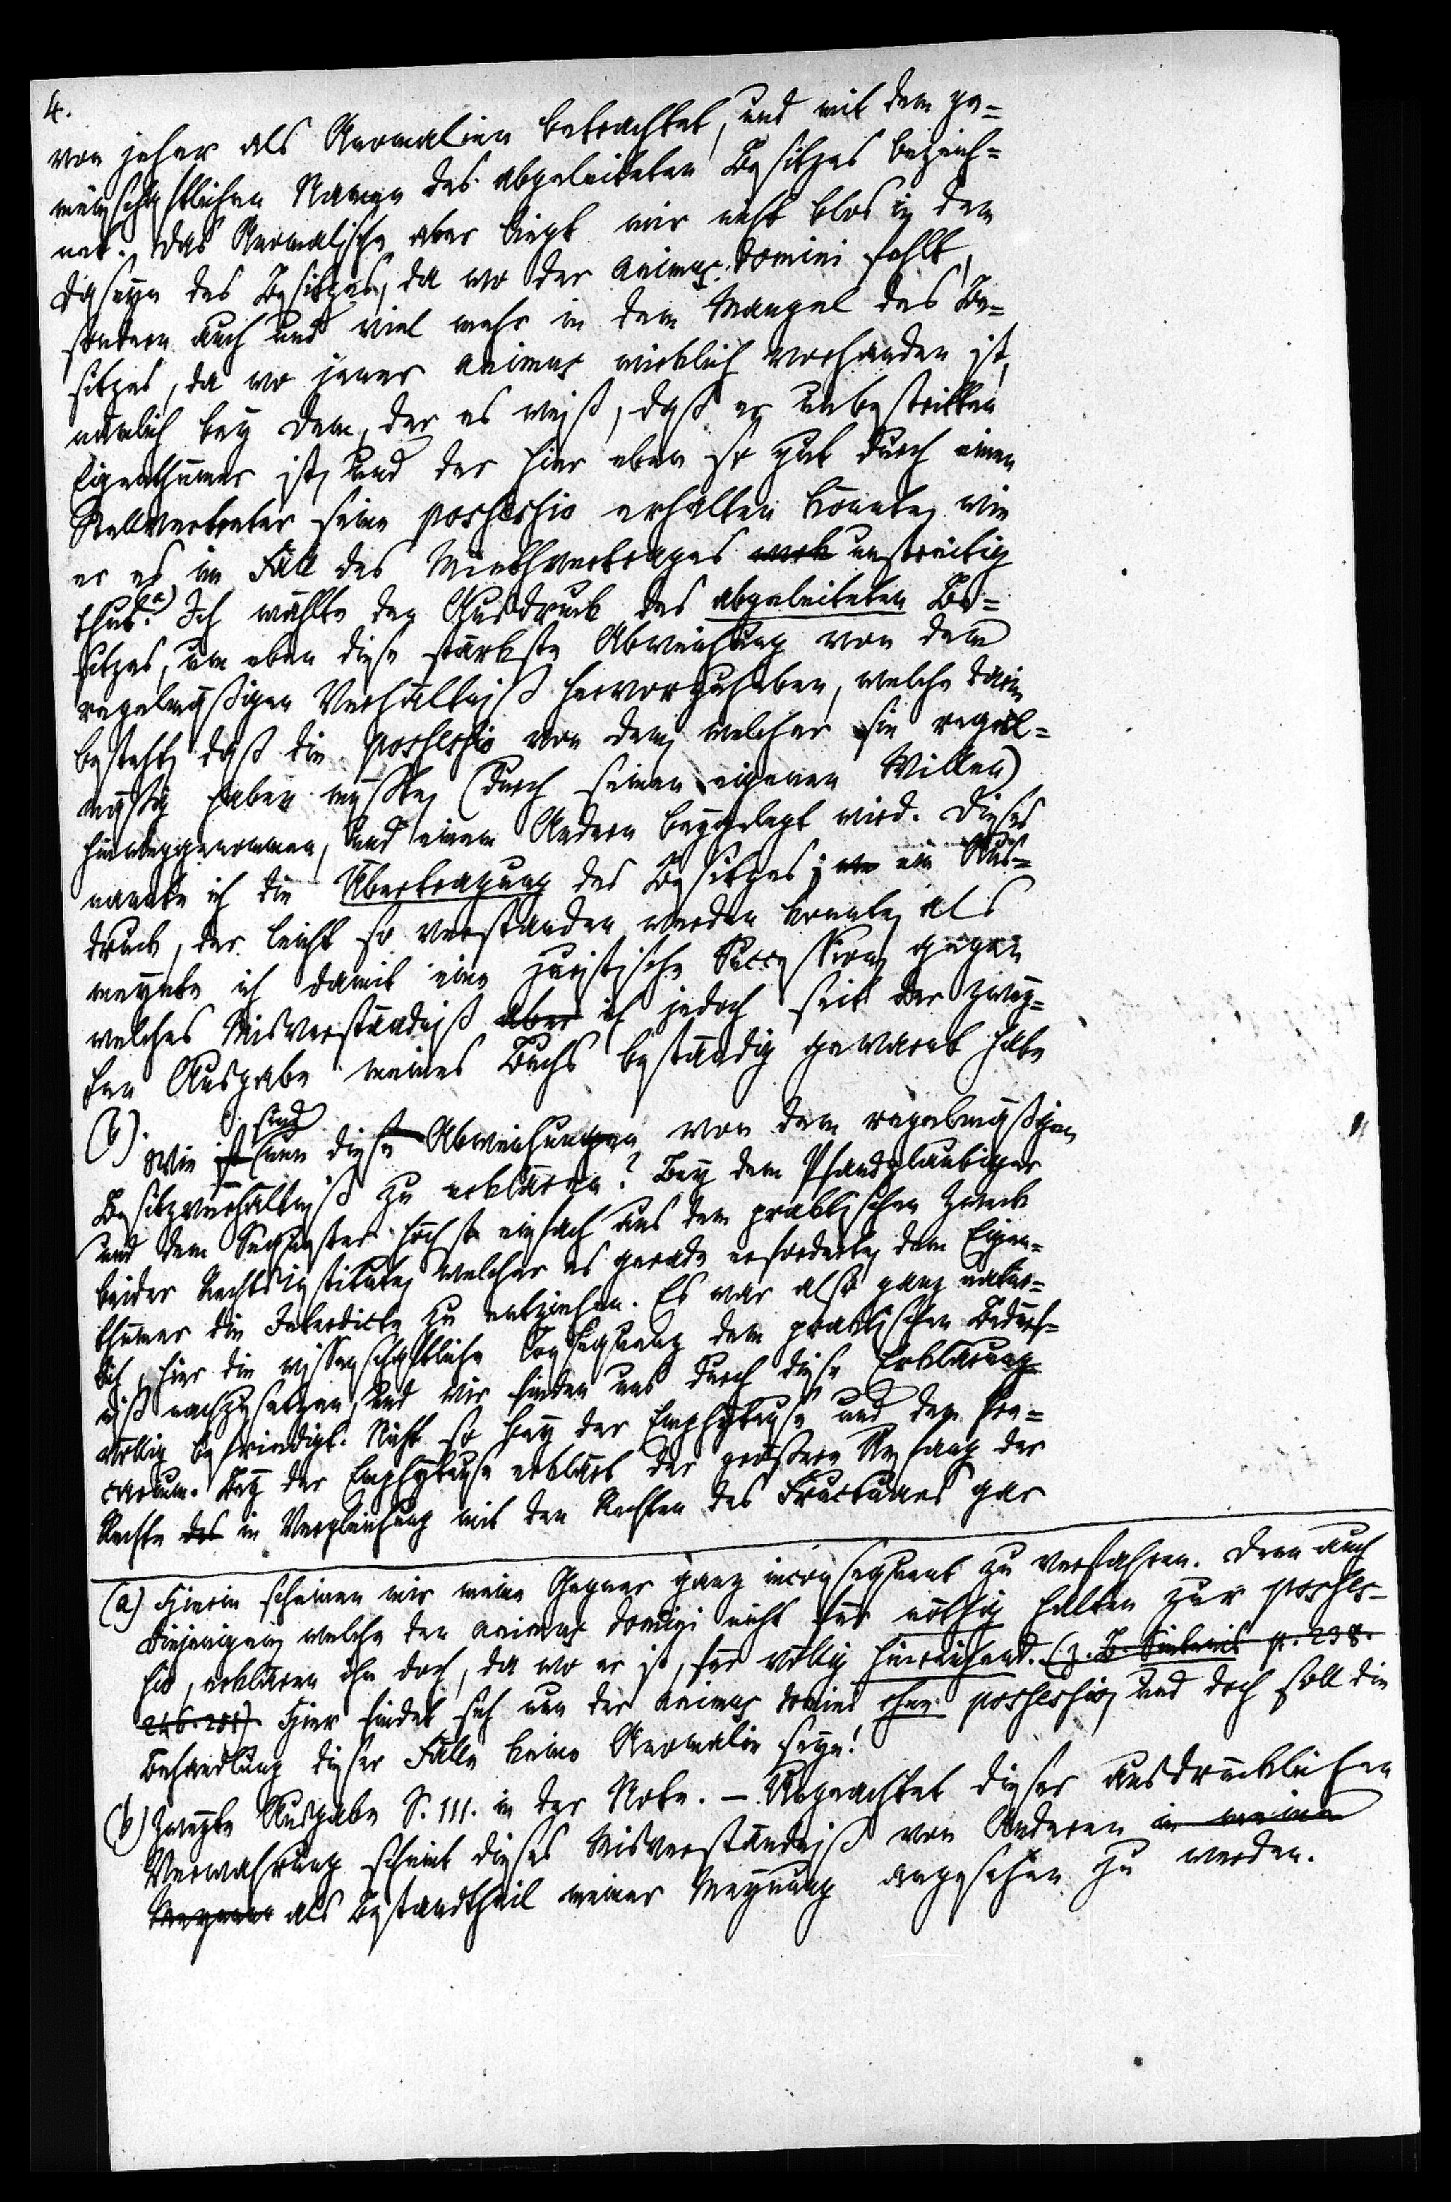 4.
von jeher als Anomalien betrachtet, und mit dem ge=
meinschaftlichen Namen des abgeleiteten Besitzes bezeich=
net. Das Anomalische aber liegt mir nicht blos in dem
Daseyn des Besitzes, da wo der animus domini fehlt,
sondern auch und viel mehr in dem Mangel des Be=
sitzes, da wo jener animus wirklich vorhanden ist,
nämlich bey dem, der es weiß, daß er unbestritten
Eigenthümer ist, und der hier eben so gut durch einen
Stellvertreter seine possessio erhalten könnte, wie
er es im Fall des Miethvertrages unstreitig
thut.(a) Ich wählte den Ausdruck des abgeleiteten Be=
sitzes, um eben diese stärkste Abweichung von dem
regelmäßigen Verhältniß hervorzuheben, welche darin
besteht, daß die possessio von dem, welcher sie regel=
mäßig haben müßte, (durch seinen eigenen Willen)
hinweggenommen, und einem Andern beygelegt wird. Dieses
nannte ich die Übertragung des Besitzes; ein Aus=
druck, der leicht so verstanden werden konnte, als
meynte ich damit eine juristische Succession, gegen
welches Misverständniß aber ich jedoch seit der zwey=
ten Ausgabe meines Buchs beständig gewarnt habe
(b).
sind
Wie ist nun diese Abweichungen von dem regelmäßigen
Besitzverhältniß zu erklären? Bey dem Pfandgläubiger
und dem Sequester höchst einfach aus dem praktischen Zweck
beider Rechtsinstitute, welcher es gerade erforderte, dem Eigen=
thümer die Interdicte zu entziehen. Es war also ganz natür=
lich, hier die wissenschaftliche Consequenz dem praktischen Bedürf=
niß nachzusetzen, und wir finden uns durch diese Erklärung
völlig befriedigt. Nicht so bey der Emphyteuse und dem Pre=
carium. Bey der Emphyteuse erklärt der größere Umfang der
Rechte des in Vergleichung mit den Rechten des Fructuars gar
(a) Hierin scheinen mir meine Gegner ganz inconsequent zu verfahren. Denn auch
diejenigen, welche den animus domini nicht für nöthig halten zur posses=
sio, erklären ihn doch, da wo er ist, für völlig hinreichend. (z. B. Sintenis p. 238.
246. ) Hier findet sich nun der animus domini ohne possessio, und doch soll die
Behandlung dieser Fälle keine Anomalie seyn!
(b) Zweyte Ausgabe S. 111. in der Note. – Ungeachtet dieser ausdrücklichen
Verwahrung scheint dieses Misverständniß von Anderen in meine
Meynung als Bestandtheil meiner Meynung angesehen zu werden.